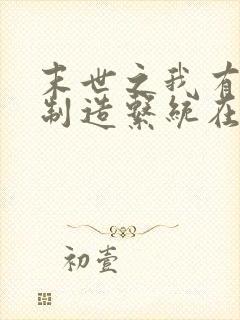 末世之我有
制造系统在
初壹